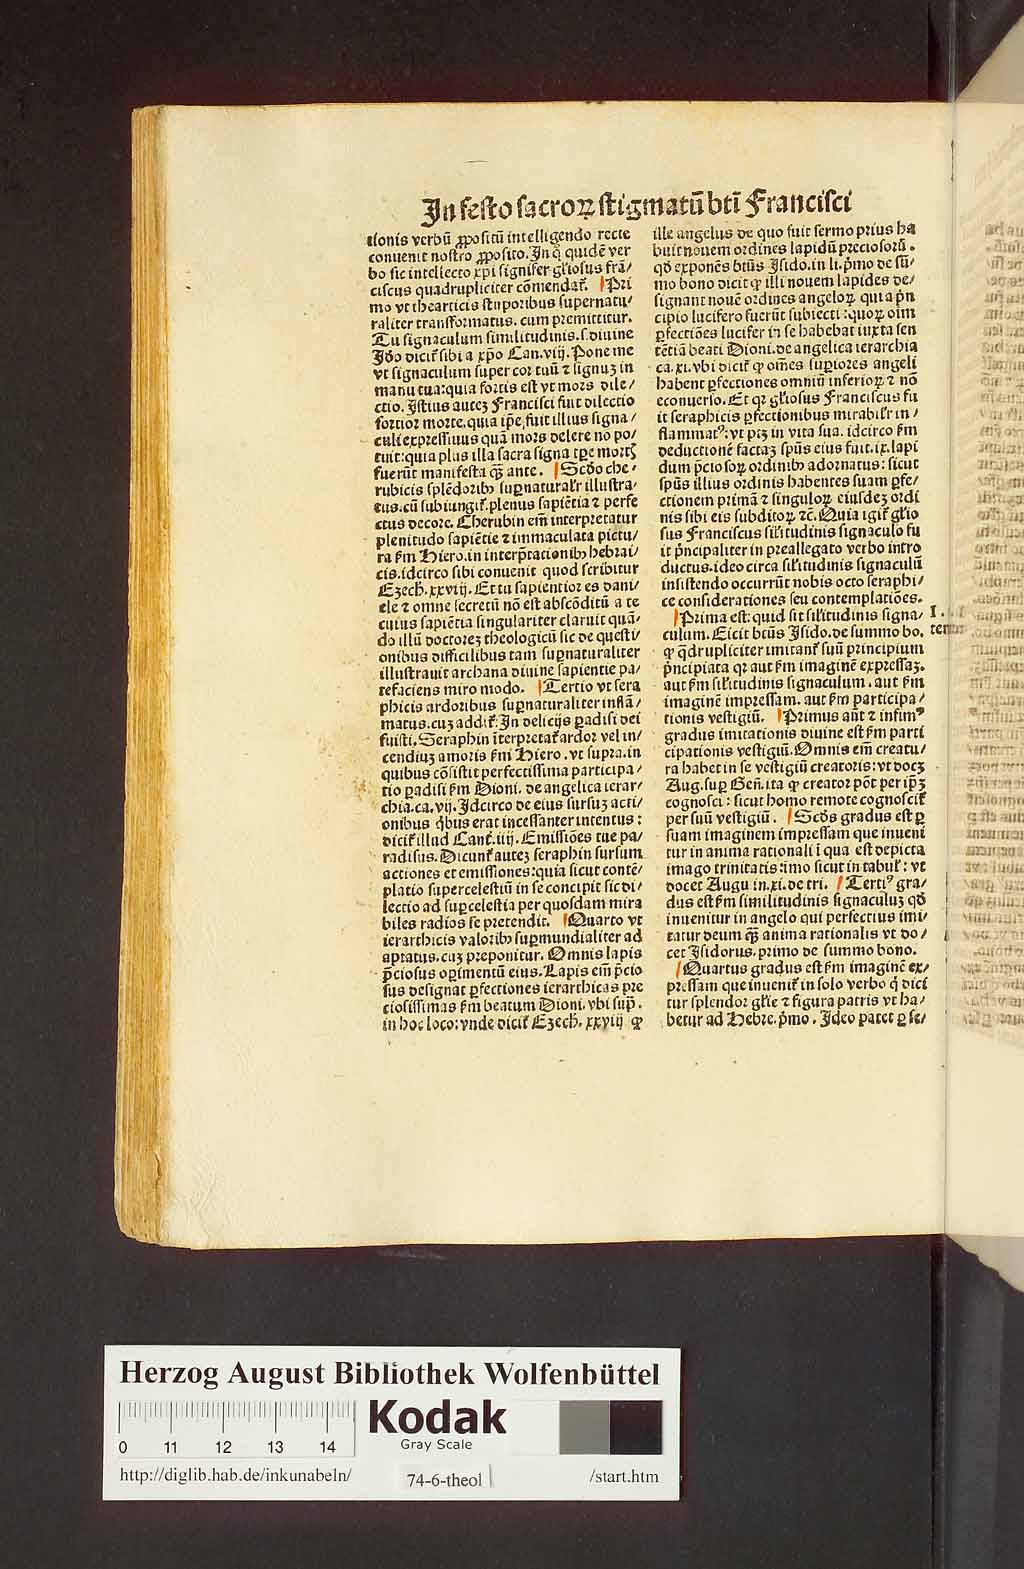 In festo sacroꝝ stigmatū btī Francisci
tionis verbū ꝓpositū intelligendo recte
conuenit nostro ꝓposito. In q̄ quidē ver
bo sic intellecto xp̄i signifer gl̄iosus frā/
ciscus quadrupliciter cōmendat᷑. Pri
mo vt thearticis stuporibus supernatu/
raliter transformatus. cum premittitur.
Tu signaculum similitudinis. s. diuine
Id̄o dicit᷑ sibi a xp̄o Can. viij. Pone me
vt signaculum super cor tuū ⁊ signuꝫ in
manu tua: quia fortis est vt mors dile/
ctio. Istius auteꝫ Francisci fuit dilectio
fortior morte. quia ip̄e fuit illius signa/
culi expressiuus quā mors delere no po/
tuit: quia plus illa sacra signa tꝑe mortꝭ
fuerūt manifesta qꝫ̄ ante. Scd̄o che/
rubicis splēdoribꝰ suꝑnatural'r illustra/
tus. cū subiungit᷑. plenus sapiētia ⁊ perfe
ctus decore. Cherubin em̄ interpretatur
plenitudo sapiētie ⁊ immaculata pictu/
ra ẜm Hiero. in interp̄tationibꝰ hebrai/
cis. idcirco sibi conuenit quod scribitur
Ezech. xxviij. Et tu sapientior es dani/
ele ⁊ omne secretū nō est abscōditū a te
cuius sapiētia singulariter claruit quā/
do illū doctoreꝫ theologicū sic de questi/
onibus difficilibus tam suꝑnaturaliter
illustrauit archana diuine sapientie pa/
tefaciens miro modo. Tertio vt sera
phicis ardoribus suꝑnaturaliter inflā/
matus. cuꝫ addit᷑. In delicijs ꝑadisi dei
fuisti. Seraphin īterpretat᷑ ardor vel in/
cendiuꝫ amoris ẜm Hiero. vt supra. in
quibus cōsistit perfectissima participa/
tio ꝑadisi ẜm Dioni. de angelica ierar/
chia. ca. vij. Idcirco de eius sursuꝫ acti/
onibus q̇bus erat incessanter intentus:
dicit᷑ illud Cant. iiij. Emissiōes tue pa/
radisus. Dicunt᷑ auteꝫ seraphin sursum
actiones et emissiones: quia sicut conte/
platio supercelestiū in se concipit sic di/
lectio ad suꝑcelestia per quosdam mira
biles radios se pretendit. Quarto vt
ierarthicis valoribꝰ suꝑmundialiter ad
aptatus. cuꝫ preponitur. Omnis lapis
p̄ciosus oꝑimentū eius. Lapis em̄ p̄cio
sus designat ꝑfectiones ierarthicas pre
ciosissimas ẜm beatum Dioni. vbi sup̄.
in hoc loco: vnde dicit᷑ Ezech. xxviij ꝙ
ille angelus de quo fuit sermo prius ha
buit nouem ordines lapidū preciosorū.
qd̄ exponēs btūs Isido. in li. p̄mo de sū/
mo bono dicit ꝙ illi nouem lapides de/
signant nouē ordines angeloꝝ qui a p̄n
cipio lucifero fuerūt subiecti: quoꝝ oīm
ꝑfectiōes lucifer in se habebat iuxta sen
tētiā beati Dioni. de angelica ierarchia
ca. xi. vbi dicit᷑ ꝙ om̄es suꝑiores angeli
habent ꝑfectiones omniū inferioꝝ ⁊ nō
econuerso. Et qꝛ gl̄iosus Franciscus fu
it seraphicis ꝑfectionibus mirabil'r in/
flammatꝰ: vt ptꝫ in vita sua. idcirco ẜm
deductionē factaꝫ spūs eius fuit. ix. lapi
dum p̄ciosoꝝ ordinibꝰ adornatus: sicut
spūs illius ordinis habentes suam ꝑfe/
ctionem primā ⁊ singuloꝝ eiusdeꝫ ordi
nis sibi eis subditoꝝ ⁊c̄. Quia igit᷑ gl̄io
sus Franciscus sil'itudinis signaculo fu
it p̄ncipaliter in preallegato verbo intro
ductus. ideo circa sil'itudinis signaculū
insistendo occurrūt nobis octo seraphi/
ce considerationes seu contemplatiōes.
Prima est: quid sit sil'itudinis signa/
culum. Eicit btūs Isido. de summo bo.
ꝙ q̄drupliciter imitant᷑ suū principium
p̄ncipiata qꝛ aut ẜm imaginē expressaꝫ.
aut ẜm sil'itudinis signaculum. aut ẜm
imaginē impressam. aut ẜm participa/
tionis vestigiū. Primus aūt ⁊ infimꝰ
gradus imitationis diuine est ẜm parti
cipationis vestigiū. Omnis em̄ creatu/
ra habet in se vestigiū creatoris: vt docꝫ
Aug. suꝑ Gen̄. ita ꝙ creator pōt per ip̄ꝫ
cognosci: sicut homo remote cognoscit᷑
per suū vestigiū. Scd̄s gradus est ꝑ
suam imaginem impressam que inueni
tur in anima rationali ī qua est depicta
imago trinitatis: imo sicut in tabul': vt
docet Augu in. xi. de tri. Tertiꝰ gra/
dus est ẜm similitudinis signaculuꝫ qd̄
inuenitur in angelo qui perfectius imi/
tatur deum qꝫ̄ anima rationalis vt do/
cet Isidorus. primo de summo bono.
Quartus gradus est ẜm imaginē ex/
pressam que inuenit᷑ in solo verbo q̇ dici
tur splendor gl̄ie ⁊ figura patris vt ha/
betur ad Hebre. p̄mo. Ideo patet ꝑ se/
Herzog August Bibliothek Wolfenbüttel
0 11 12 13 14
Kodak
Gray Scale
http://diglib.hab.de/inkunabeln/
74-6-theol
/start.htm